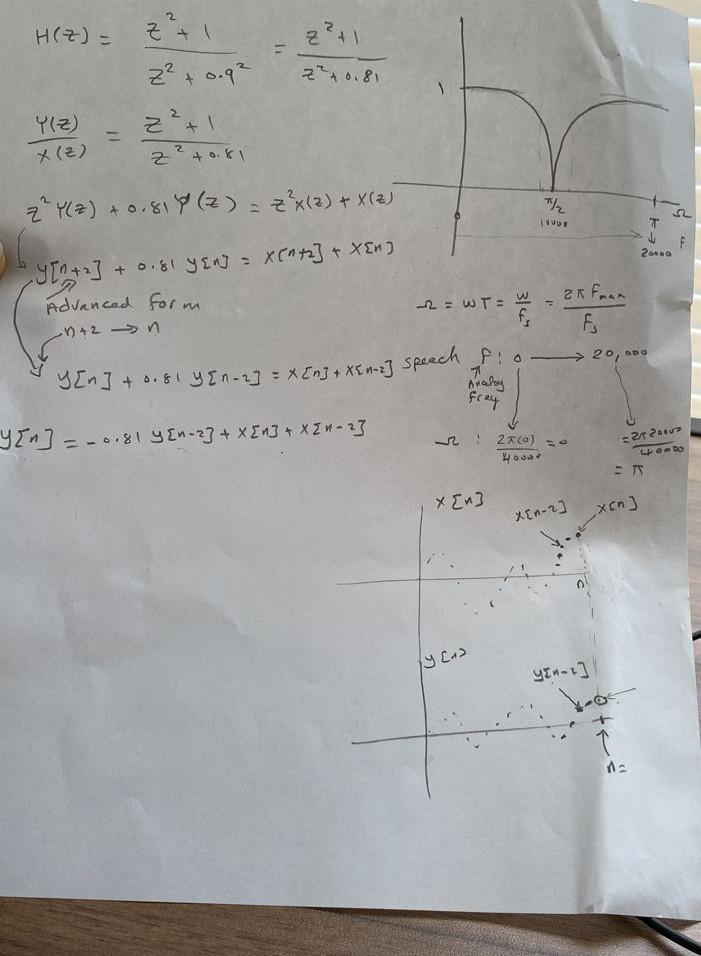 H(z) = (z² + 1) / (z² + 0.9²) = (z² + 1) / (z² + 0.81)
Y(z) / X(z) = (z² + 1) / (z² + 0.81)
z² Y(z) + 0.81 Y(z) = z² X(z) + X(z)
y[n+2] + 0.81 y[n] = x[n+2] + x[n]
Advanced form
n+2 → n
y[n] + 0.81 y[n-2] = x[n] + x[n-2]
y[n] = -0.81 y[n-2] + x[n] + x[n-2]
1
π/2 π Ω
10000 20000 f
Ω = WT = W / Fs = 2π Fmax / Fs
speech f : 0 → 20,000
Analog
Freq
Ω : 2π(0) / 40000 = 0 = 2π 20000 / 40000
= π
x[n]
x[n-2] x[n]
n
y[n]
y[n-2]
n=